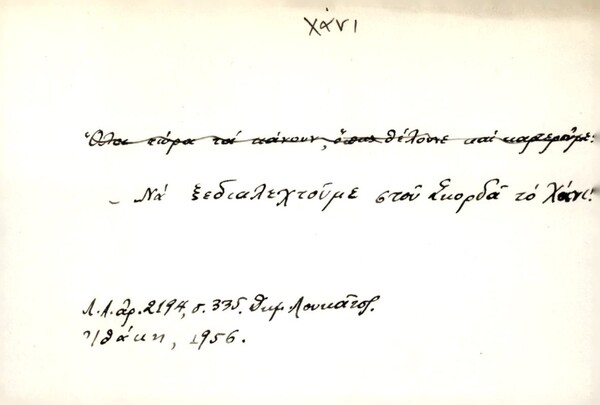 χάνι
Ὅλοι τώρα τά κάνουν, ὅπως θέλουνε καί καρτεροῦμε:
– Νά ξεδιαλεχτοῦμε στοῦ Σκορδᾶ τό Χάνι!
Λ.Α. ἀρ. 2194, σ. 335. Δημ. Λουκᾶτος.
Ἰθάκη, 1956.